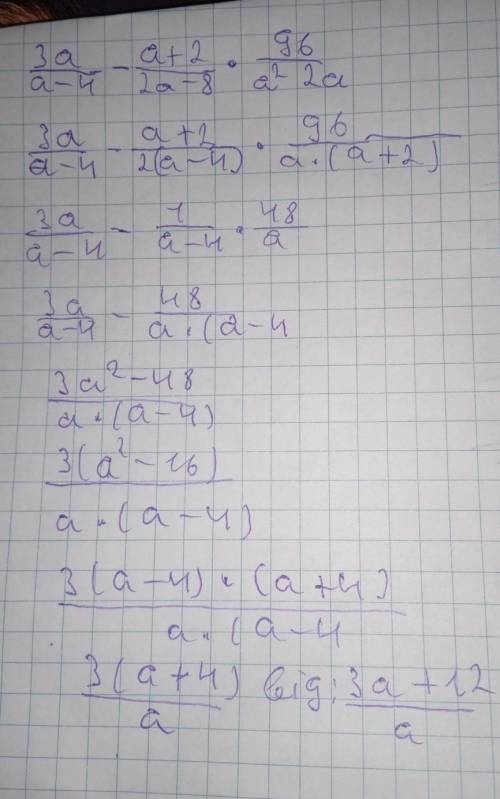 3a/(a-4) - (a+2)/(2a-8) · 96/(a² 2a)
3a/(a-4) - (a+2)/(2(a-4)) · 96/(a·(a+2))
3a/(a-4) - 1/(a-4) · 48/a
3a/(a-4) - 48/(a·(a-4
(3a²-48)/(a·(a-4))
3(a²-16)/(a·(a-4))
3(a-4)·(a+4)/(a·(a-4
3(a+4)/a від: (3a+12)/a